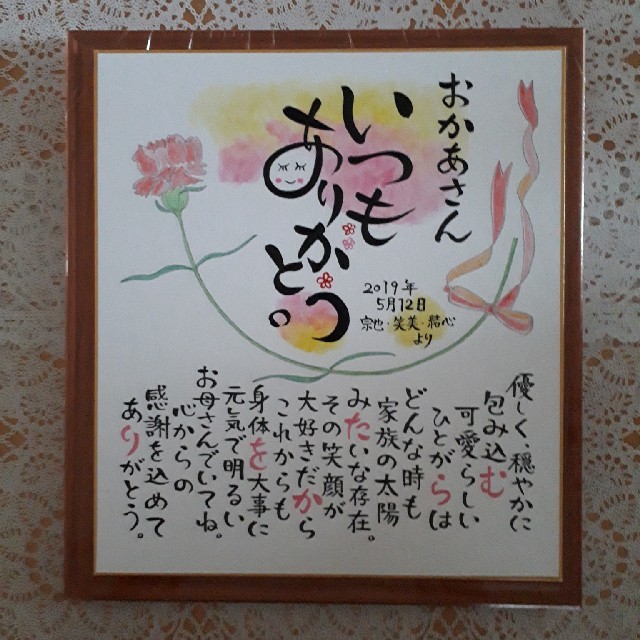 おかあさん
いつも
ありがとう。
2019年
5月12日
宗也・笑美・結心
より
優しく、穏やかに
包み込む
可愛らしい
ひとがらは
どんな時も
家族の太陽
みたいな存在。
その笑顔が
大好きだから
これからも
身体を大事に
元気で明るい
お母さんでいてね。
心からの
感謝を込めて
ありがとう。